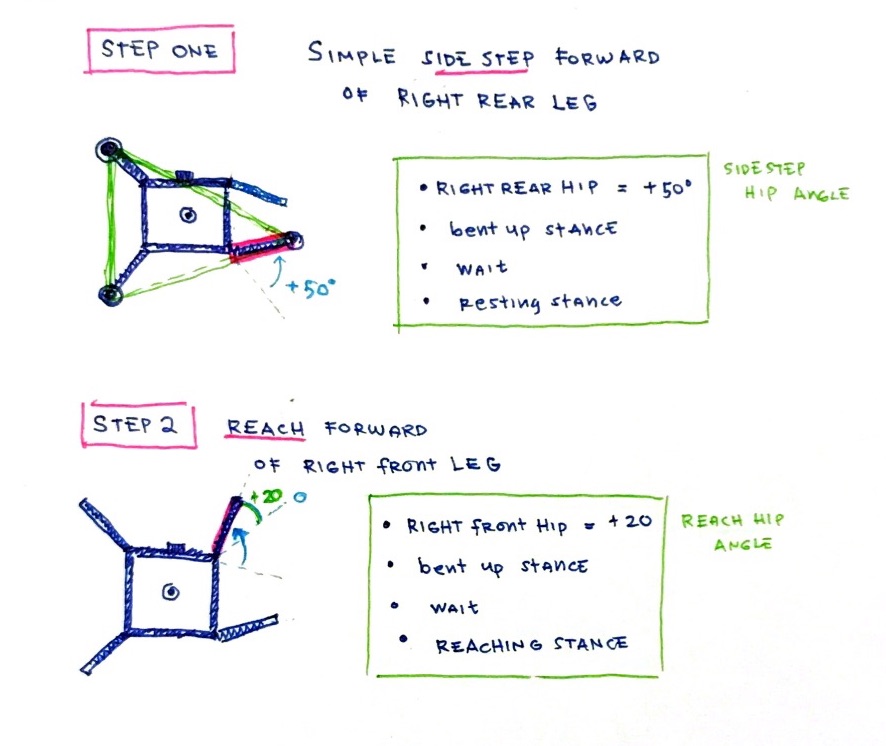 STEP ONE
SIMPLE SIDE STEP FORWARD
OF RIGHT REAR LEG
• RIGHT REAR HIP = +50°
• bent up stANCE
• WAIt
• Resting stance
SIDESTEP
HIP ANGLE
+50°
STEP 2
REACH FORWARD
OF RIGHT fRont LEG
+20 0
• RIGHT fRont HIP = +20
• bent up stANCE
• WAIt
• REACHING STANCE
REACH HIP
ANGLE